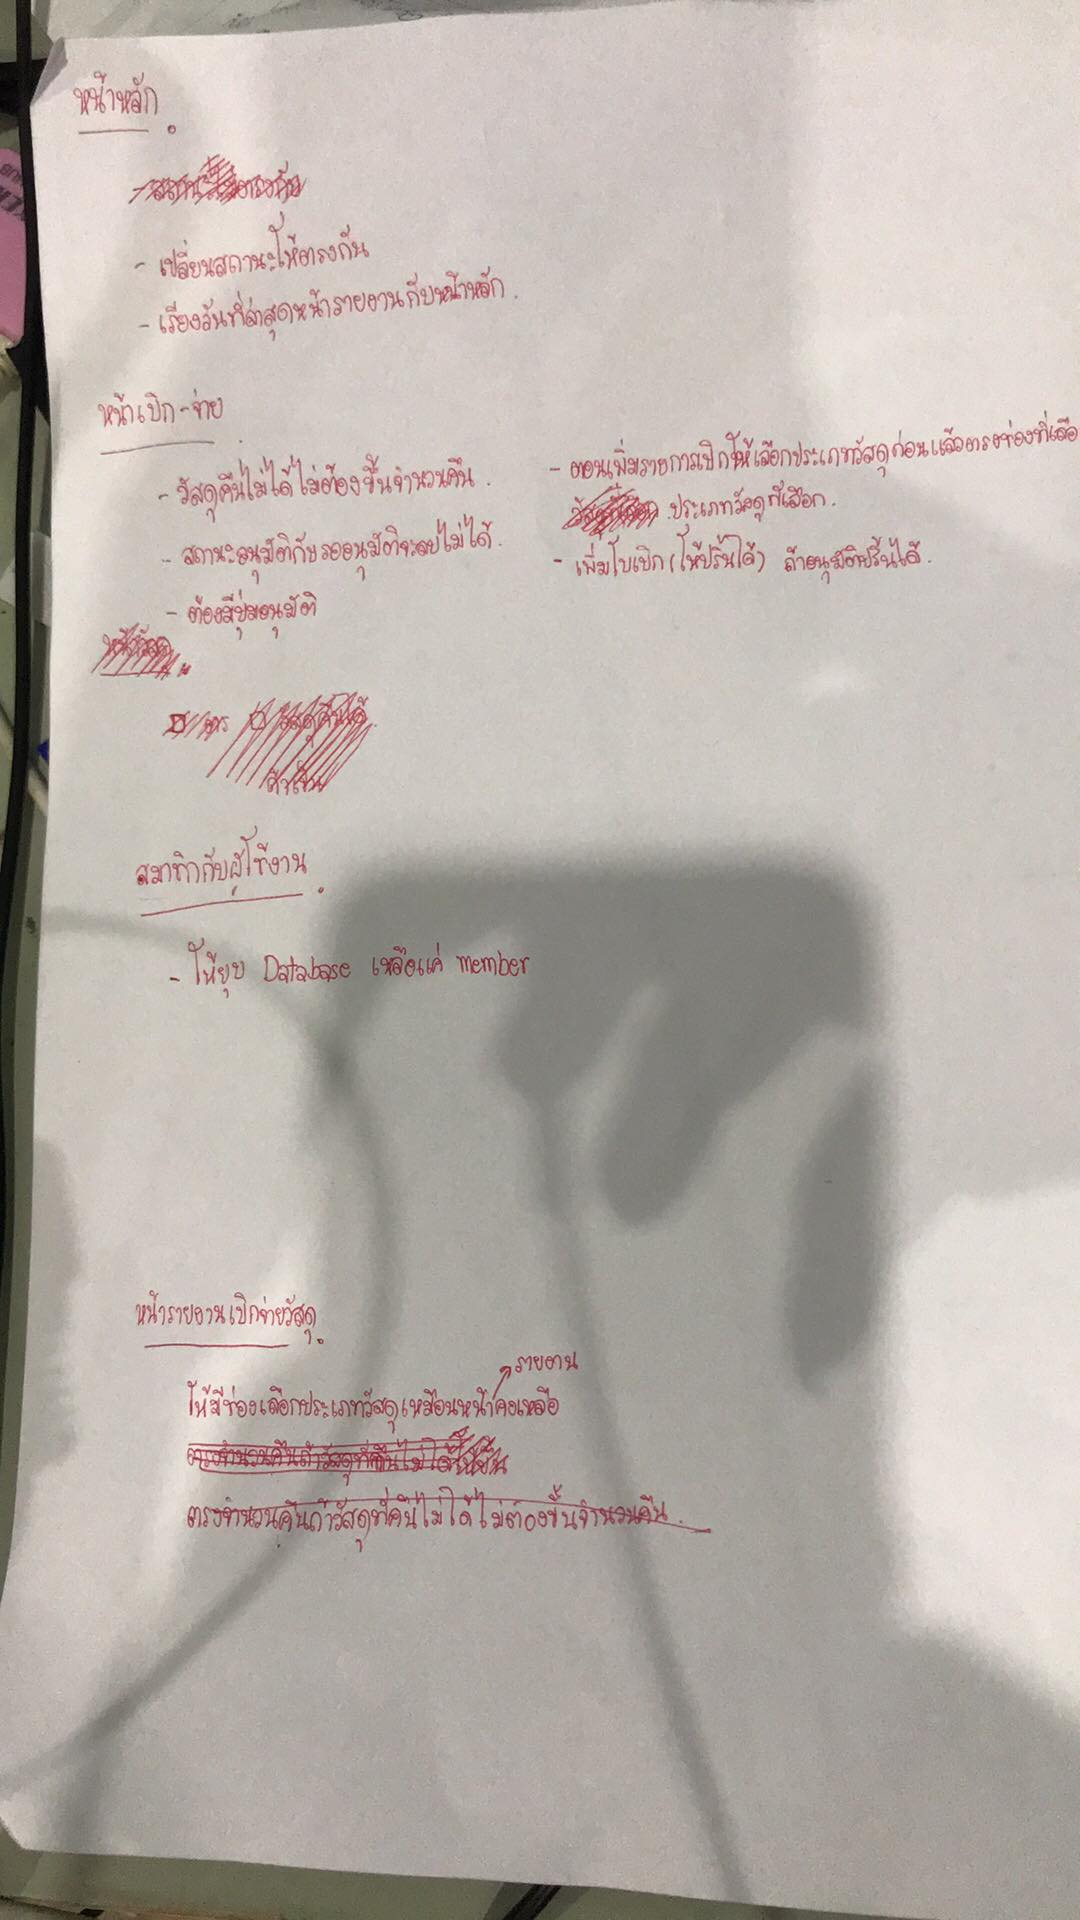 หน้าหลัก
- เปลี่ยนสถานะให้ตรงกัน
- เรียงวันที่ล่าสุดหน้ารายงานกับหน้าหลัก.
หน้าเบิก-จ่าย
- วัสดุคืนไม่ได้ไม่ต้องขึ้นจำนวนคืน.
- สถานะอนุมัติกับรออนุมัติจะลบไม่ได้.
- ต้องมีปุ่มอนุมัติ
- ตอนเพิ่มรายการเบิกให้เลือกประเภทวัสดุก่อนแล้วตรงช่องที่เลือ
ประเภทวัสดุที่เลือก.
- เพิ่มใบเบิก (ให้ปริ้นได้) ถ้าอนุมัติปริ้นได้.
สมาชิกกับผู้ใช้งาน
- ให้ยุบ Database เหลือแค่ member
หน้ารายงานเบิกจ่ายวัสดุ
รายงาน
ให้มีช่องเลือกประเภทวัสดุเหมือนหน้าคงเหลือ
ตรงจำนวนคืนถ้าวัสดุที่คืนไม่ได้ไม่ต้องขึ้นจำนวนคืน.